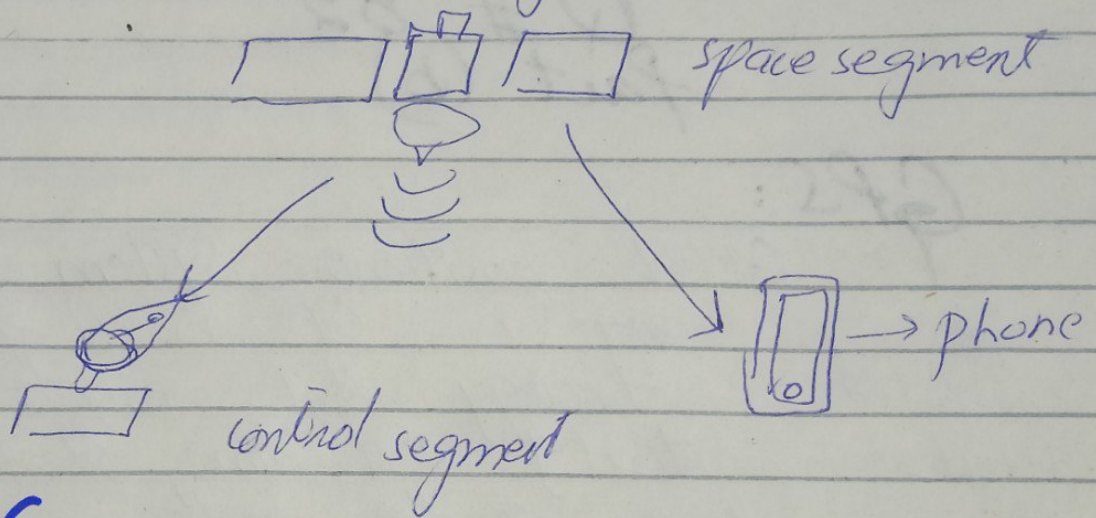 space segment
phone
control segment